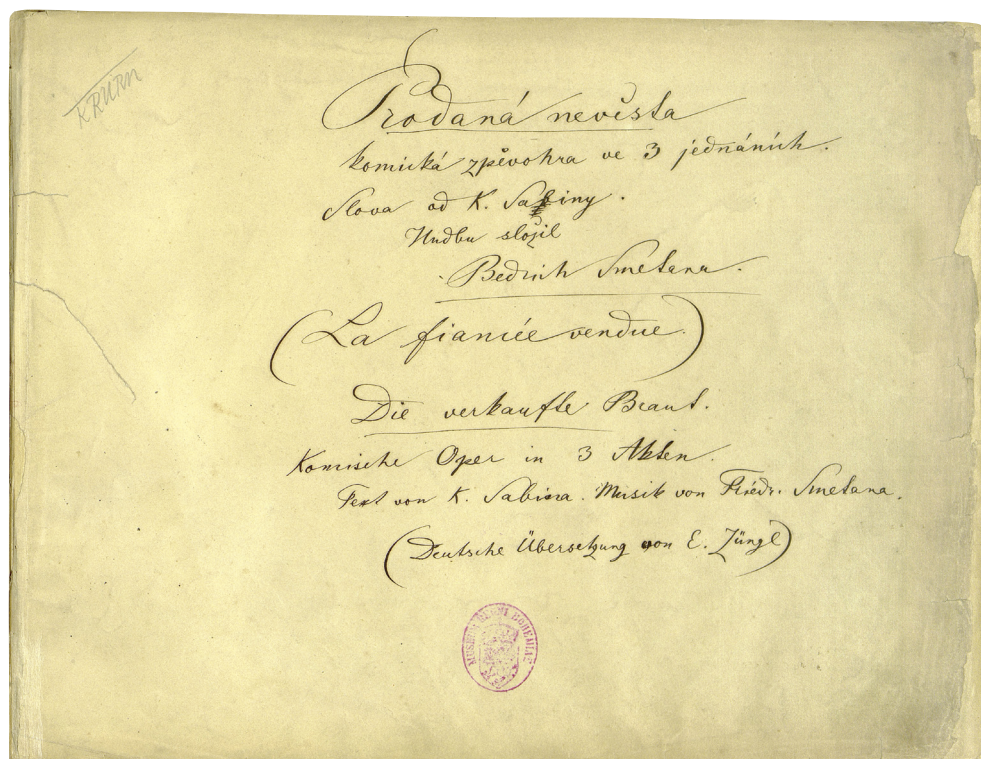 KRURN
Prodaná nevěsta
komická zpěvohra ve 3 jednáních.
Slova od K. Sabiny.
Hudbu složil
Bedrich Smetana.
(La fiancée vendue.)
Die verkaufte Braut.
Komische Oper in 3 Akten.
Text von K. Sabina. Musik von Friedr. Smetana.
(Deutsche Übersetzung von E. Züngl)
MUSEUM REGNI BOHEMIAE